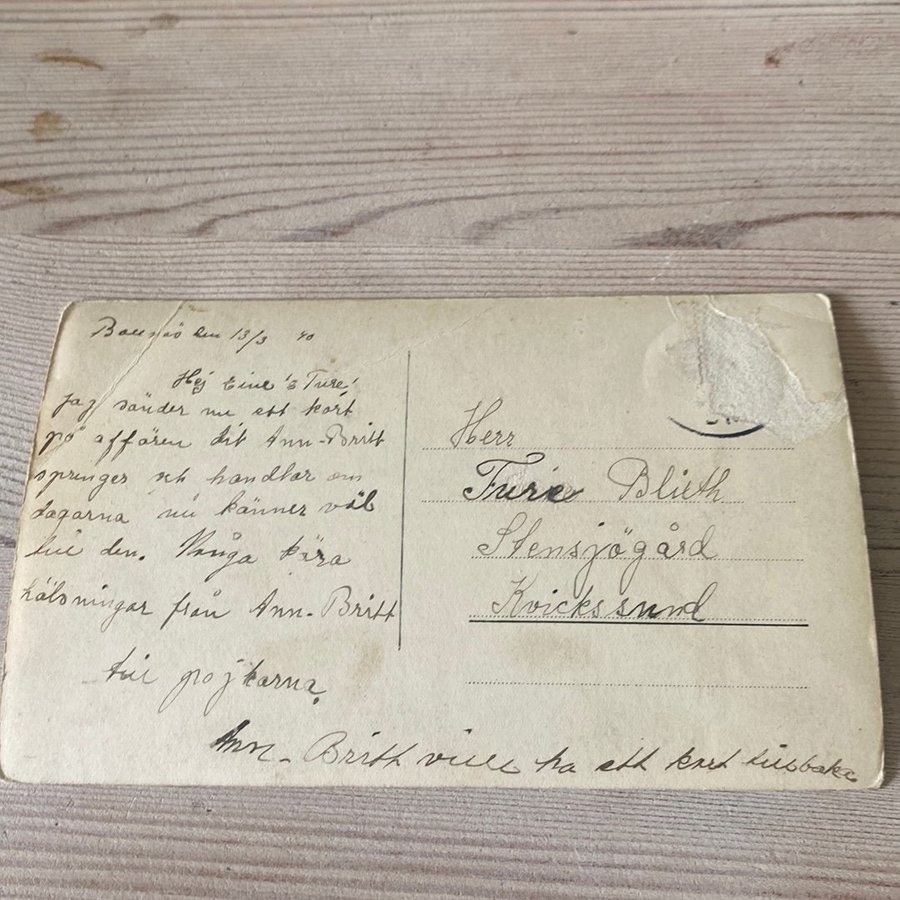 den 13/3 40
Hej Eine! & Ture!
Jag sänder nu ett kort
på affären dit Ann-Britt
springer och handlar om
dagarna nu känner väl
till den. Många kära
hälsningar från Ann-Britt
till pojkarna.
Ann-Britt vill ha ett kort tillbaka
Herr
Ture Blieth
Stensjögård
Kvickssund